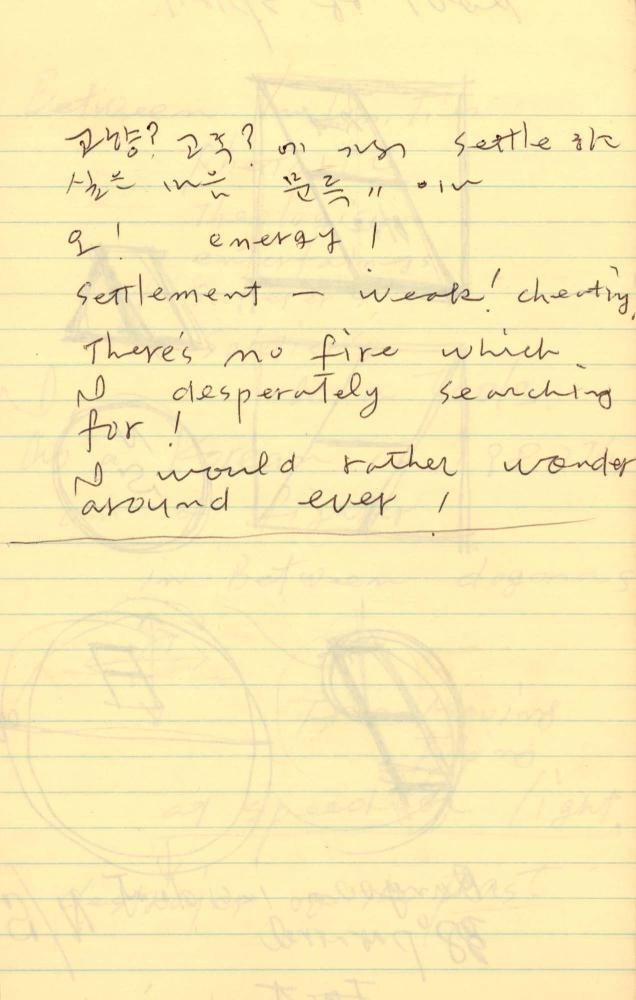 고향? 고국? 에 가서 settle 하고
싶은 마음 문득 " 이나
오! energy!
settlement — weak! cheating,
There's no fire which
I desperately searching
for!
I would rather wonder
around ever!
in Between dogmas
at speed of light,